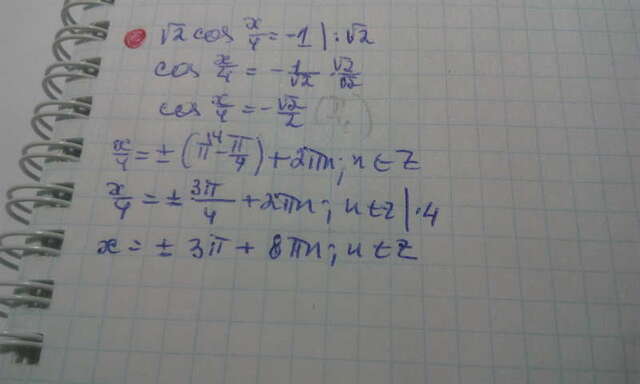 √2 cos x/4 = -1 | : √2
cos x/4 = - 1/√2 · √2/√2
cos x/4 = - √2/2
x/4 = ± (π\4 - π/4) + 2πn; n ∈ Z
x/4 = ± 3π/4 + 2πn; n ∈ Z | · 4
x = ± 3π + 8πn; n ∈ Z